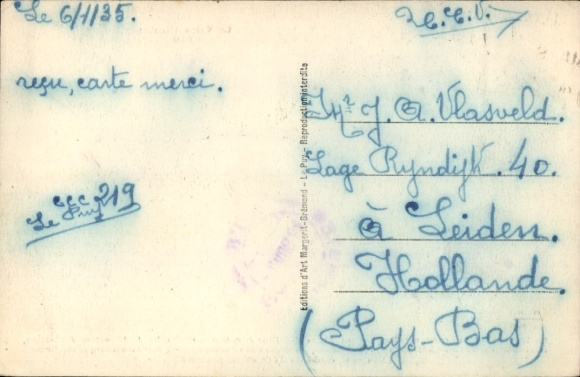 Le 6/1/35.
T.C.V.
reçu, carte merci.
Mr J. A. Vlasveld.
Lage Ryndijk. 40.
à Leiden.
Hollande.
(Pays-Bas)
CCC 219
Le Puy
Editions d'Art Margerit-Brémond - Le Puy - Reproduction interdite